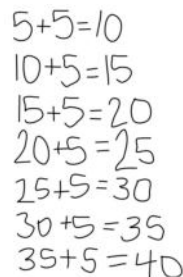 5+5=10
10+5=15
15+5=20
20+5=25
25+5=30
30+5=35
35+5=40